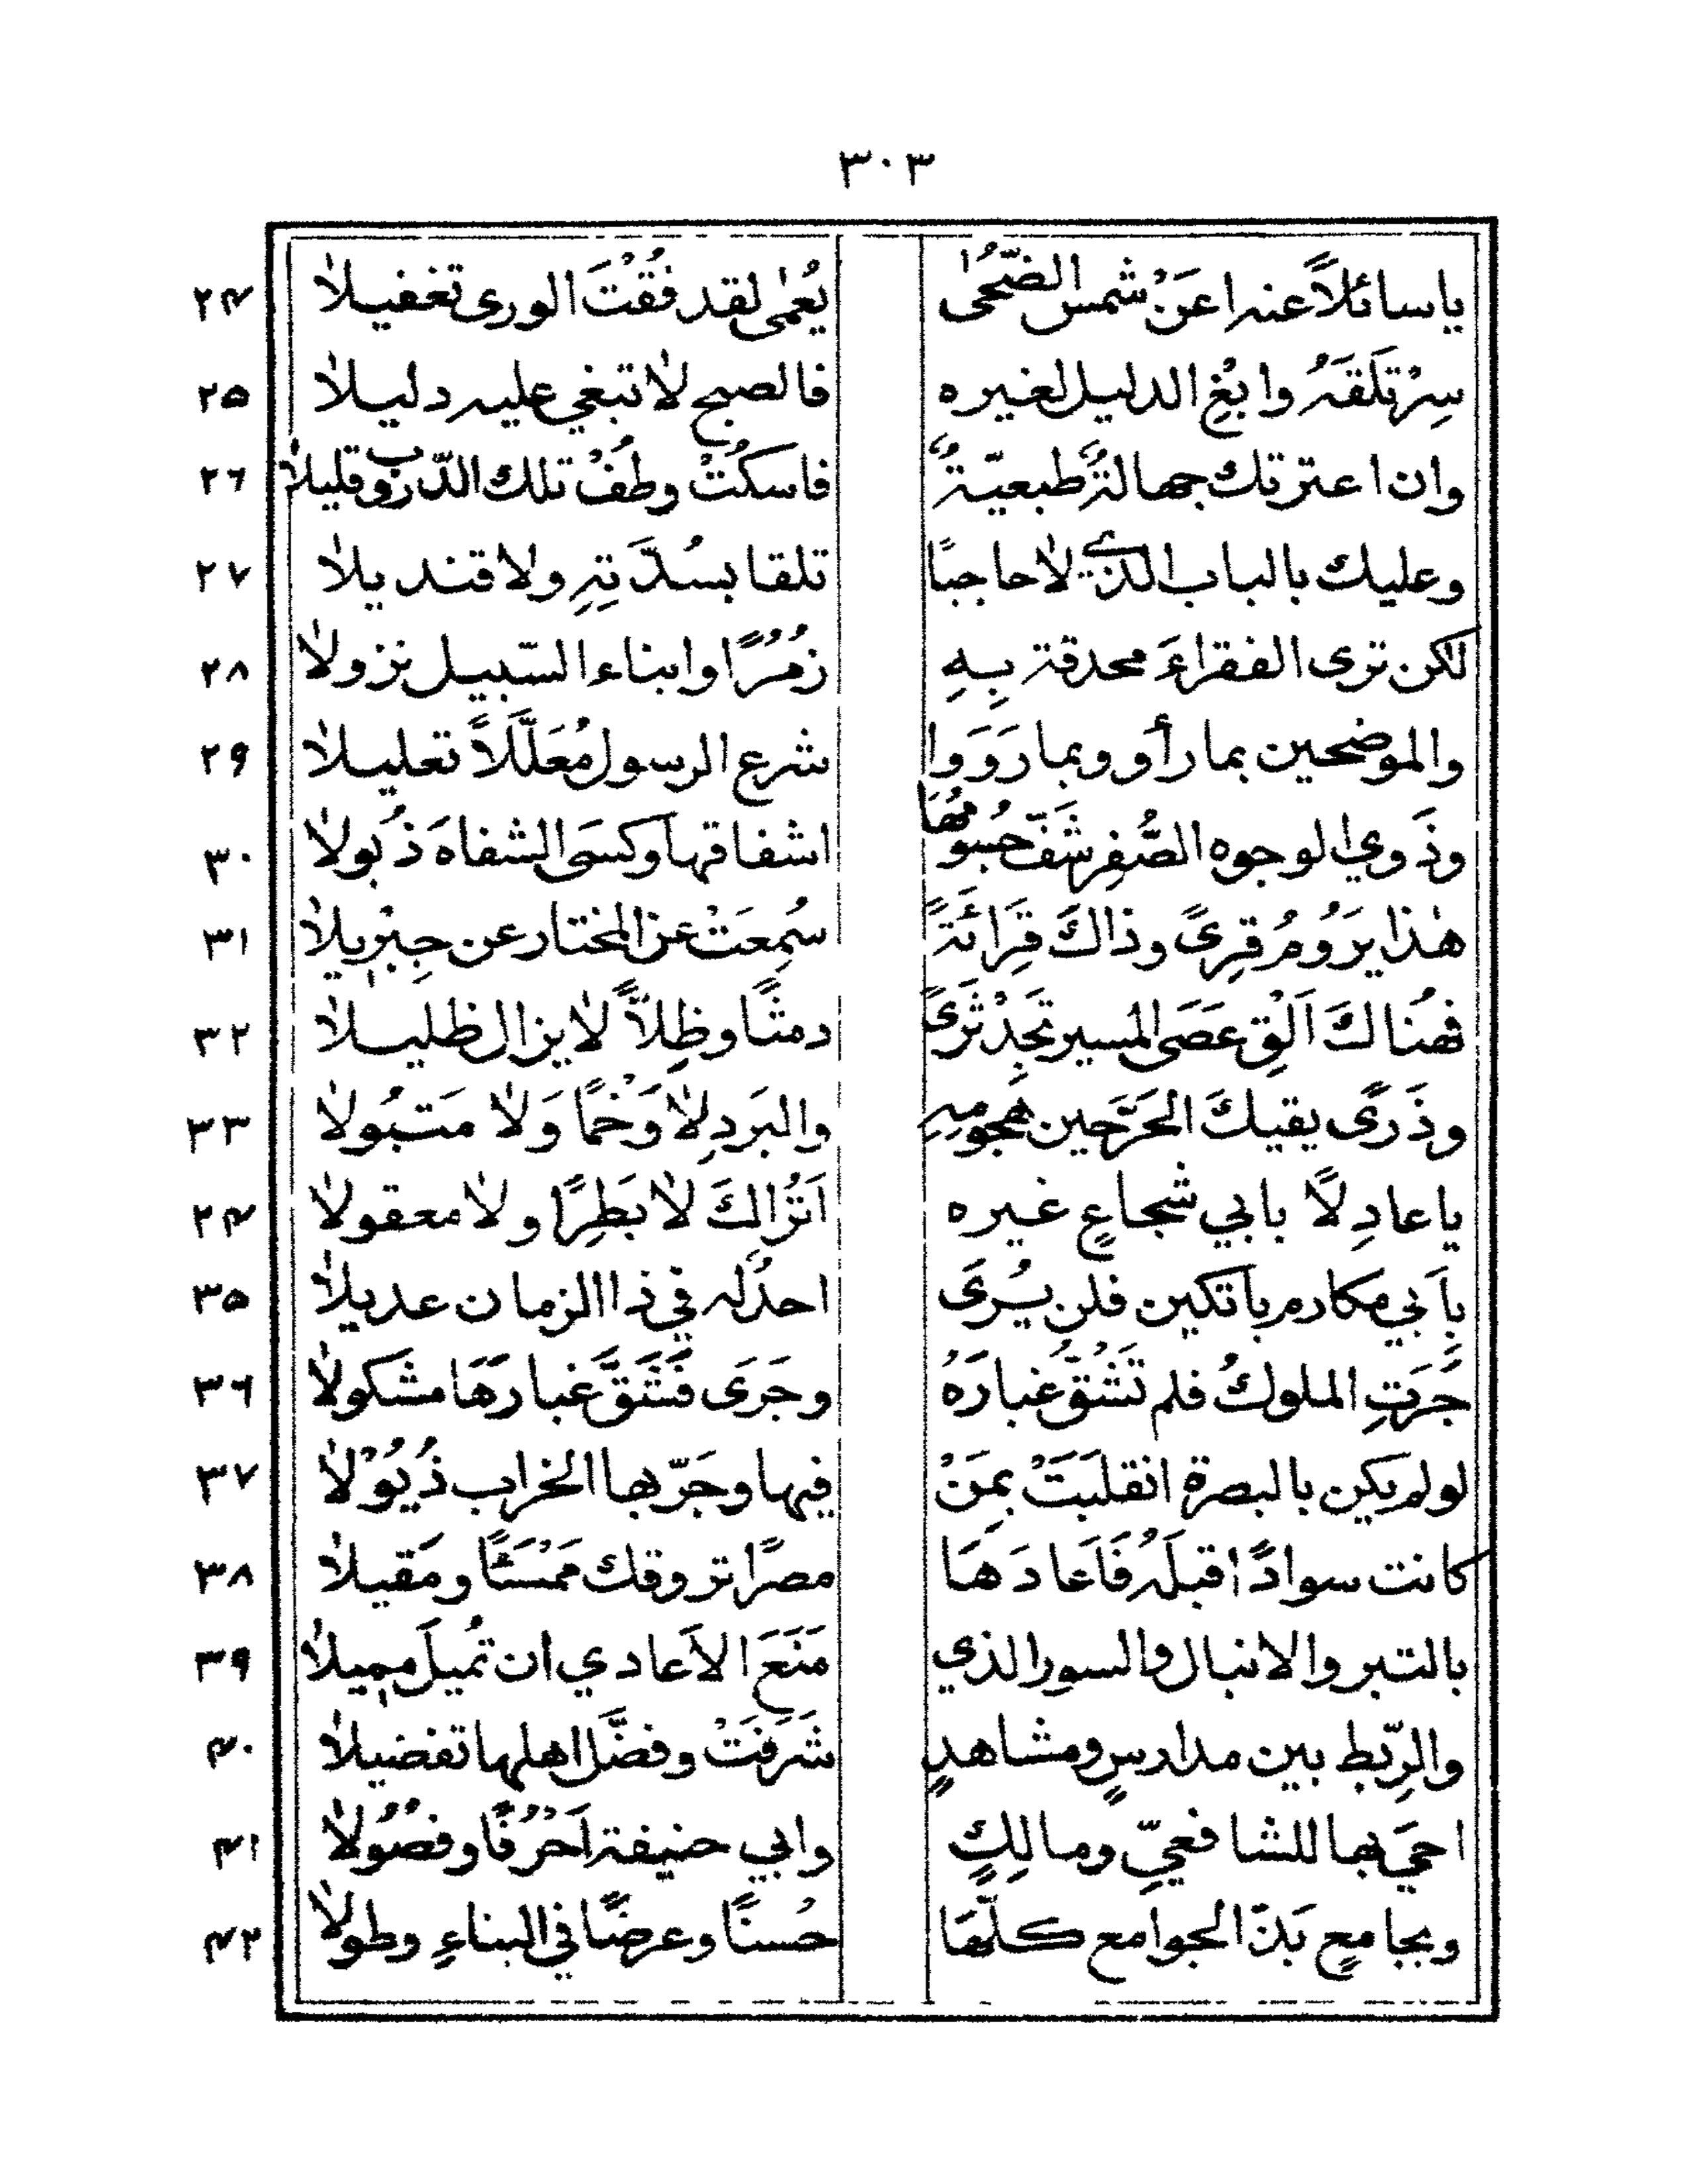 ٣٠٣
ياسائلاً عنه اعَنْ شمس الضّحُى يُعمٰى لقد فُقْتَ الورى تغفيلا ٢٤
سِرْ تَلقَهُ وابْغِ الدليل لغيره فالصبح لا تبغي عليه دليلا ٢٥
وان اعترتك جهالةٌ طبعيّةٌ فاسكُتْ وطُفْ تلك الدّروب قليلا ٢٦
وعليك بالباب الذي لا حاجبًا تلقا بسُدَّتِهِ ولا قنديلا ٢٧
لكن ترى الفقراءَ محدقة بِهِ زُمُرًا وابناء السّبيل نزولا ٢٨
والموضحين بما رأو وبما رَوَوا شرع الرسول مُعَلَّلاً تعليلا ٢٩
وذَوي الوجوه الصُّفرِ شَفَّ حُبُوبُها اشفاقها وكسَى الشفاهَ ذُبولا ٣٠
هٰذا يَرَوُمُ قِرىً وذاكَ قِرَائَةً سُمِعَتْ عن المختار عن جِبْرِيلا ٣١
فهُناكَ اَلْقِ عَصَى المسير تَجِدْ ثَرَىً دمثًا وظِلاًّ لا يزال ظليلا ٣٢
وذَرىً يقيكَ الحَرَّ حين هجومِهِ والبَردِ لا وَخْمًا وَلا مَتبُولا ٣٣
يا عادِلًا بابي شجاعٍ غيره اَتُرْاكَ لا بَطِرًا ولا معقولا ٢٤
بِاَبي مكارم باتكين فلن يُرَى احدٌ له في ذا الزمان عديلا ٣٥
جَرَتِ الملوكُ فلم تَشُقَّ غبارَهُ وجَرَى فَشَقَّ غبارَهَا مشكولا ٣٦
لولم يكن بالبصرة انقلبَتْ بمَنْ فيها وجَرّ بها الخراب ذُيُوْلا ٣٧
كانت سوادًا قبلَهُ فَاَعادَهَا مصرًا تروقك مَمْسًَا ومَقيلا ٣٨
بالتبر والانبال والسور الذي مَنَعَ الاَعادي ان تُميلَ مميلا ٣٩
والرِّبط بين مدارسٍ ومشاهدٍ شَرَفَتْ وفضَّل اهلها تفضيلا ٤٠
احيَ بها للشافعيِّ ومالِكٍ وابي حنيفة اَحْرُفًا وفصُولا ٤١
وبجامعٍ بَذّ الجوامع كلّهَا حُسنًا وعرضًا في البناءِ وطولا ٤٢